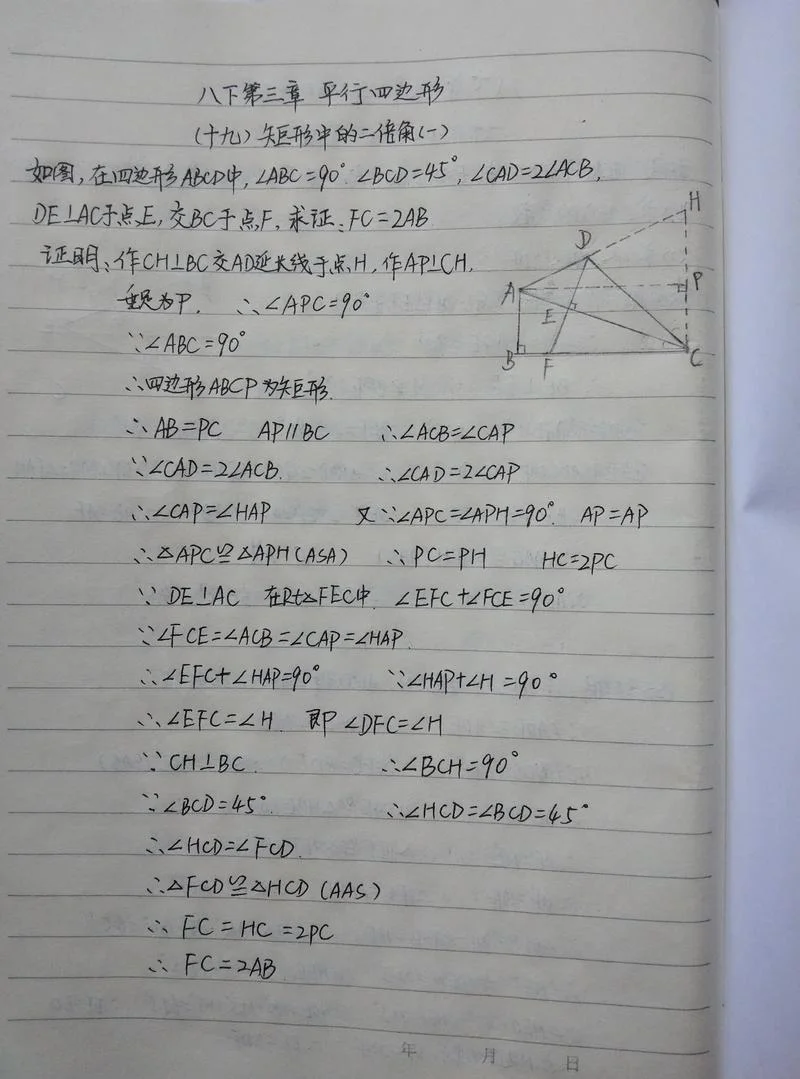 八下第三章 平行四边形
(十九)矩形中的二倍角(一)
如图,在四边形ABCD中,∠ABC=90°.∠BCD=45°,∠CAD=2∠ACB,
DE⊥AC于点E,交BC于点F,求证:FC=2AB
证明:作CH⊥BC交AD延长线于点H,作AP⊥CH,
垂足为P. ∴∠APC=90°
∵∠ABC=90°
∴四边形ABCP为矩形.
∴AB=PC AP∥BC ∴∠ACB=∠CAP
∵∠CAD=2∠ACB. ∴∠CAD=2∠CAP
∴∠CAP=∠HAP 又∵∠APC=∠APH=90°. AP=AP
∴△APC≌△APH(ASA) ∴PC=PH HC=2PC
∵DE⊥AC 在Rt△FEC中. ∠EFC+∠FCE=90°
∵∠FCE=∠ACB=∠CAP=∠HAP.
∴∠EFC+∠HAP=90° ∵∠HAP+∠H=90°
∴∠EFC=∠H. 即∠DFC=∠H
∵CH⊥BC. ∴∠BCH=90°
∵∠BCD=45°. ∴∠HCD=∠BCD=45°
∴∠HCD=∠FCD.
∴△FCD≌△HCD(AAS)
∴FC=HC=2PC
∴FC=2AB
H
D
A
P
E
B
F
C
年 月 日